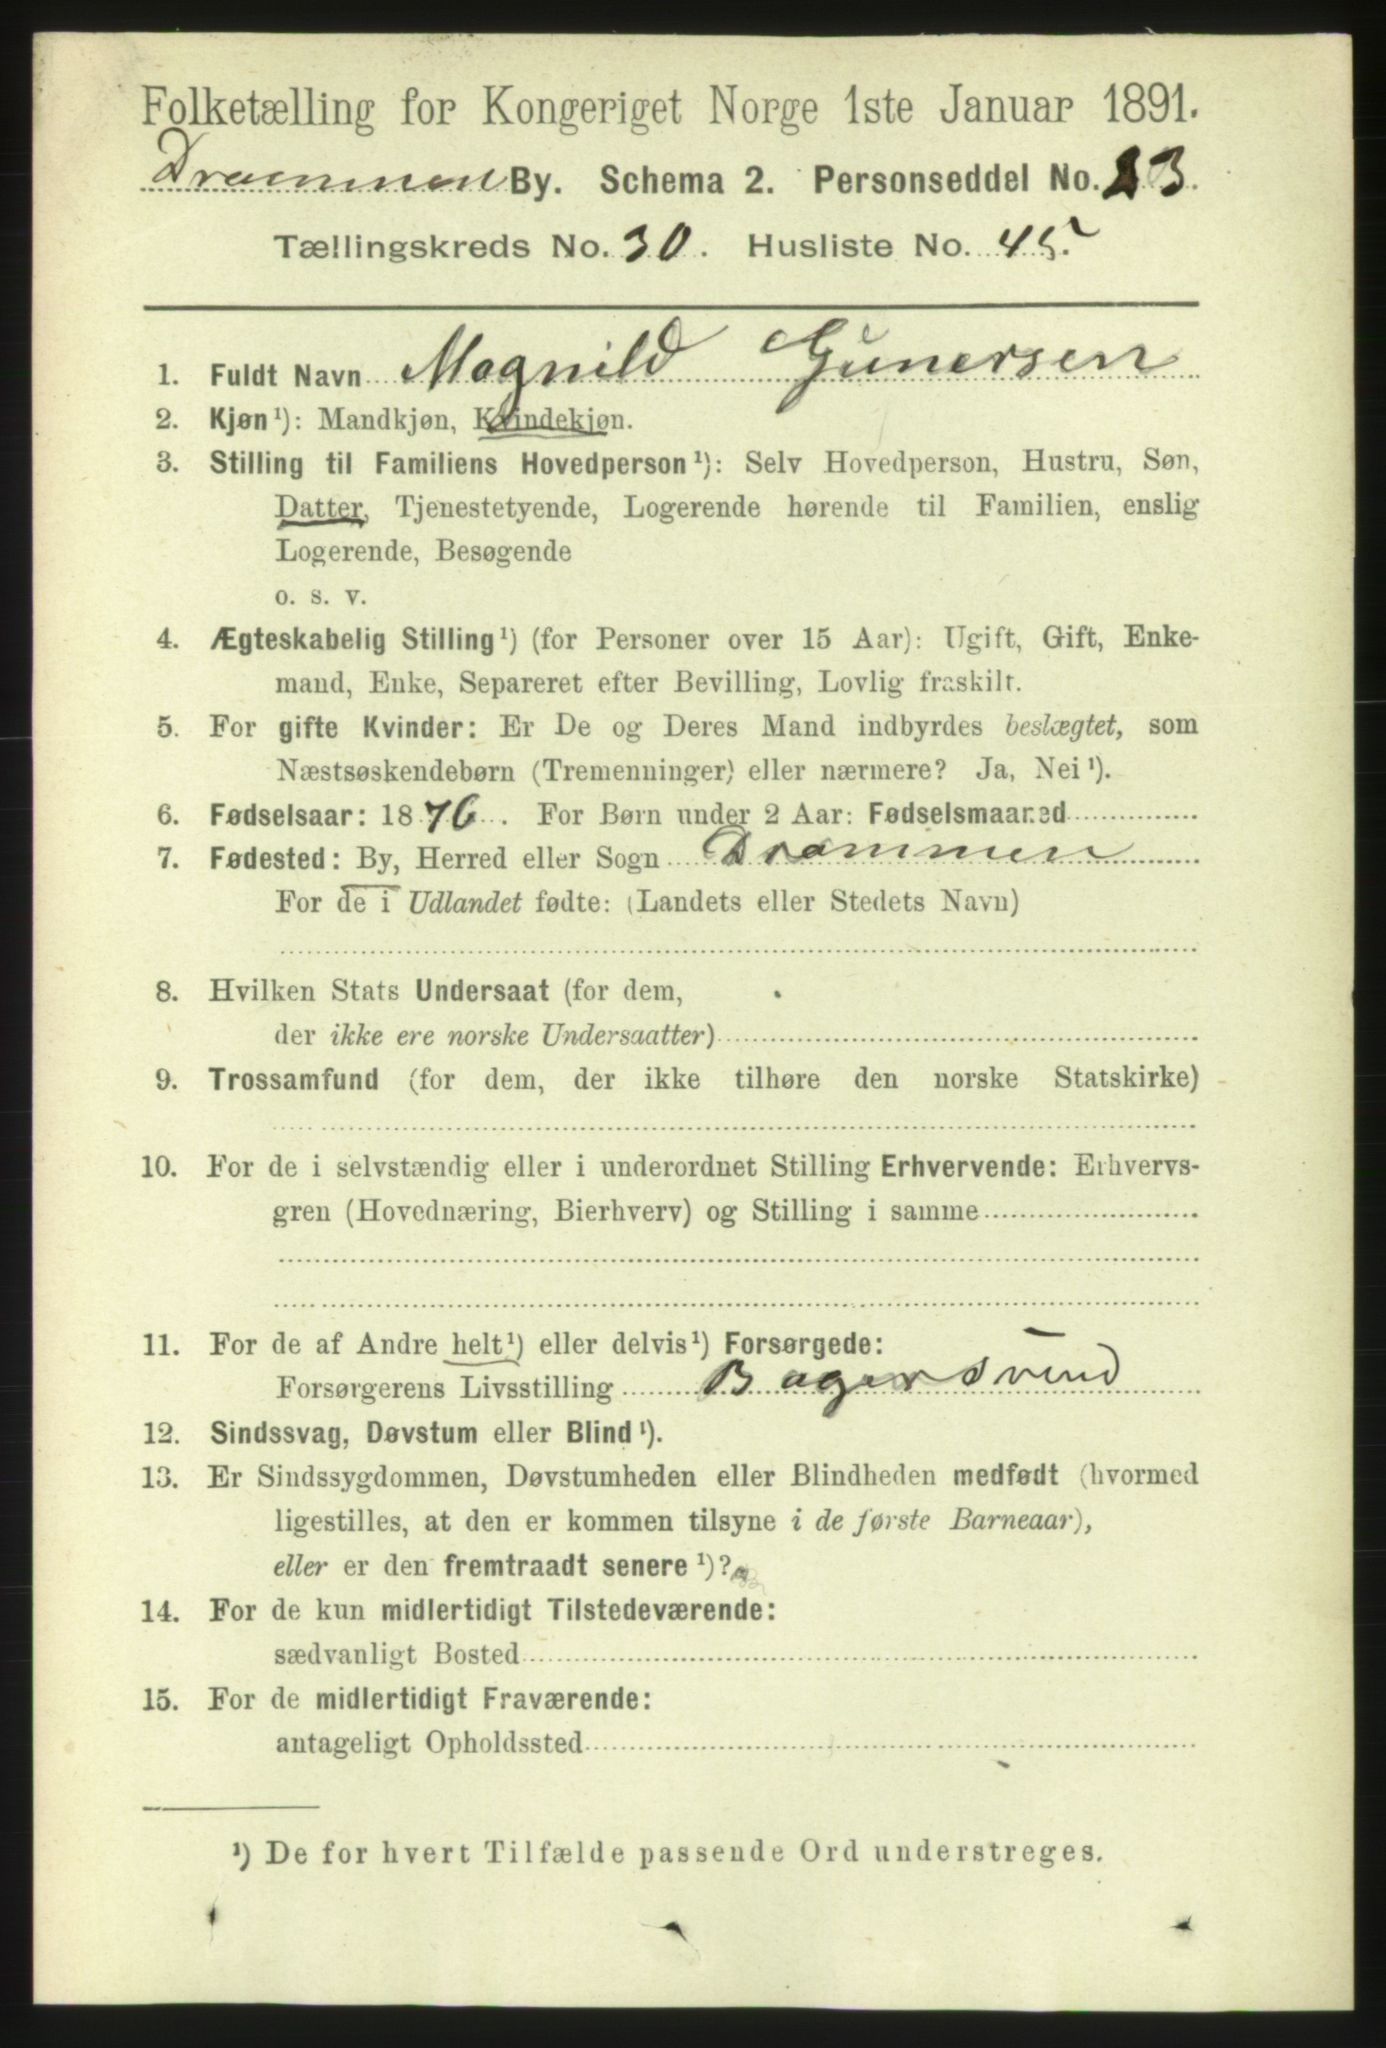 Folketælling for Kongeriget Norge 1ste Januar 1891.
Drammen By. Schema 2. Personseddel No. 23.
Tællingskreds No. 30. Husliste No. 45.
1. Fuldt Navn Magnild Gunersen
2. Kjøn¹): Mandkjøn, Kvindekjøn.
3. Stilling til Familiens Hovedperson¹): Selv Hovedperson, Hustru, Søn,
Datter, Tjenestetyende, Logerende hørende til Familien, enslig
Logerende, Besøgende
o. s. v.
4. Ægteskabelig Stilling¹) (for Personer over 15 Aar): Ugift, Gift, Enke-
mand, Enke, Separeret efter Bevilling, Lovlig fraskilt.
5. For gifte Kvinder: Er De og Deres Mand indbyrdes beslægtet, som
Næstsøskendebørn (Tremenninger) eller nærmere? Ja, Nei¹).
6. Fødselsaar: 1876. For Børn under 2 Aar: Fødselsmaaned
7. Fødested: By, Herred eller Sogn Drammen
For de i Udlandet fødte: (Landets eller Stedets Navn)
8. Hvilken Stats Undersaat (for dem,
der ikke ere norske Undersaatter)
9. Trossamfund (for dem, der ikke tilhøre den norske Statskirke)
10. For de i selvstændig eller i underordnet Stilling Erhvervende: Erhvervs-
gren (Hovednæring, Bierhverv) og Stilling i samme
11. For de af Andre helt¹) eller delvis¹) Forsørgede:
Forsørgerens Livsstilling Bagersvend
12. Sindssvag, Døvstum eller Blind¹).
13. Er Sindssygdommen, Døvstumheden eller Blindheden medfødt (hvormed
ligestilles, at den er kommen tilsyne i de første Barneaar),
eller er den fremtraadt senere¹)?
14. For de kun midlertidigt Tilstedeværende:
sædvanligt Bosted
15. For de midlertidigt Fraværende:
antageligt Opholdssted
¹) De for hvert Tilfælde passende Ord understreges.